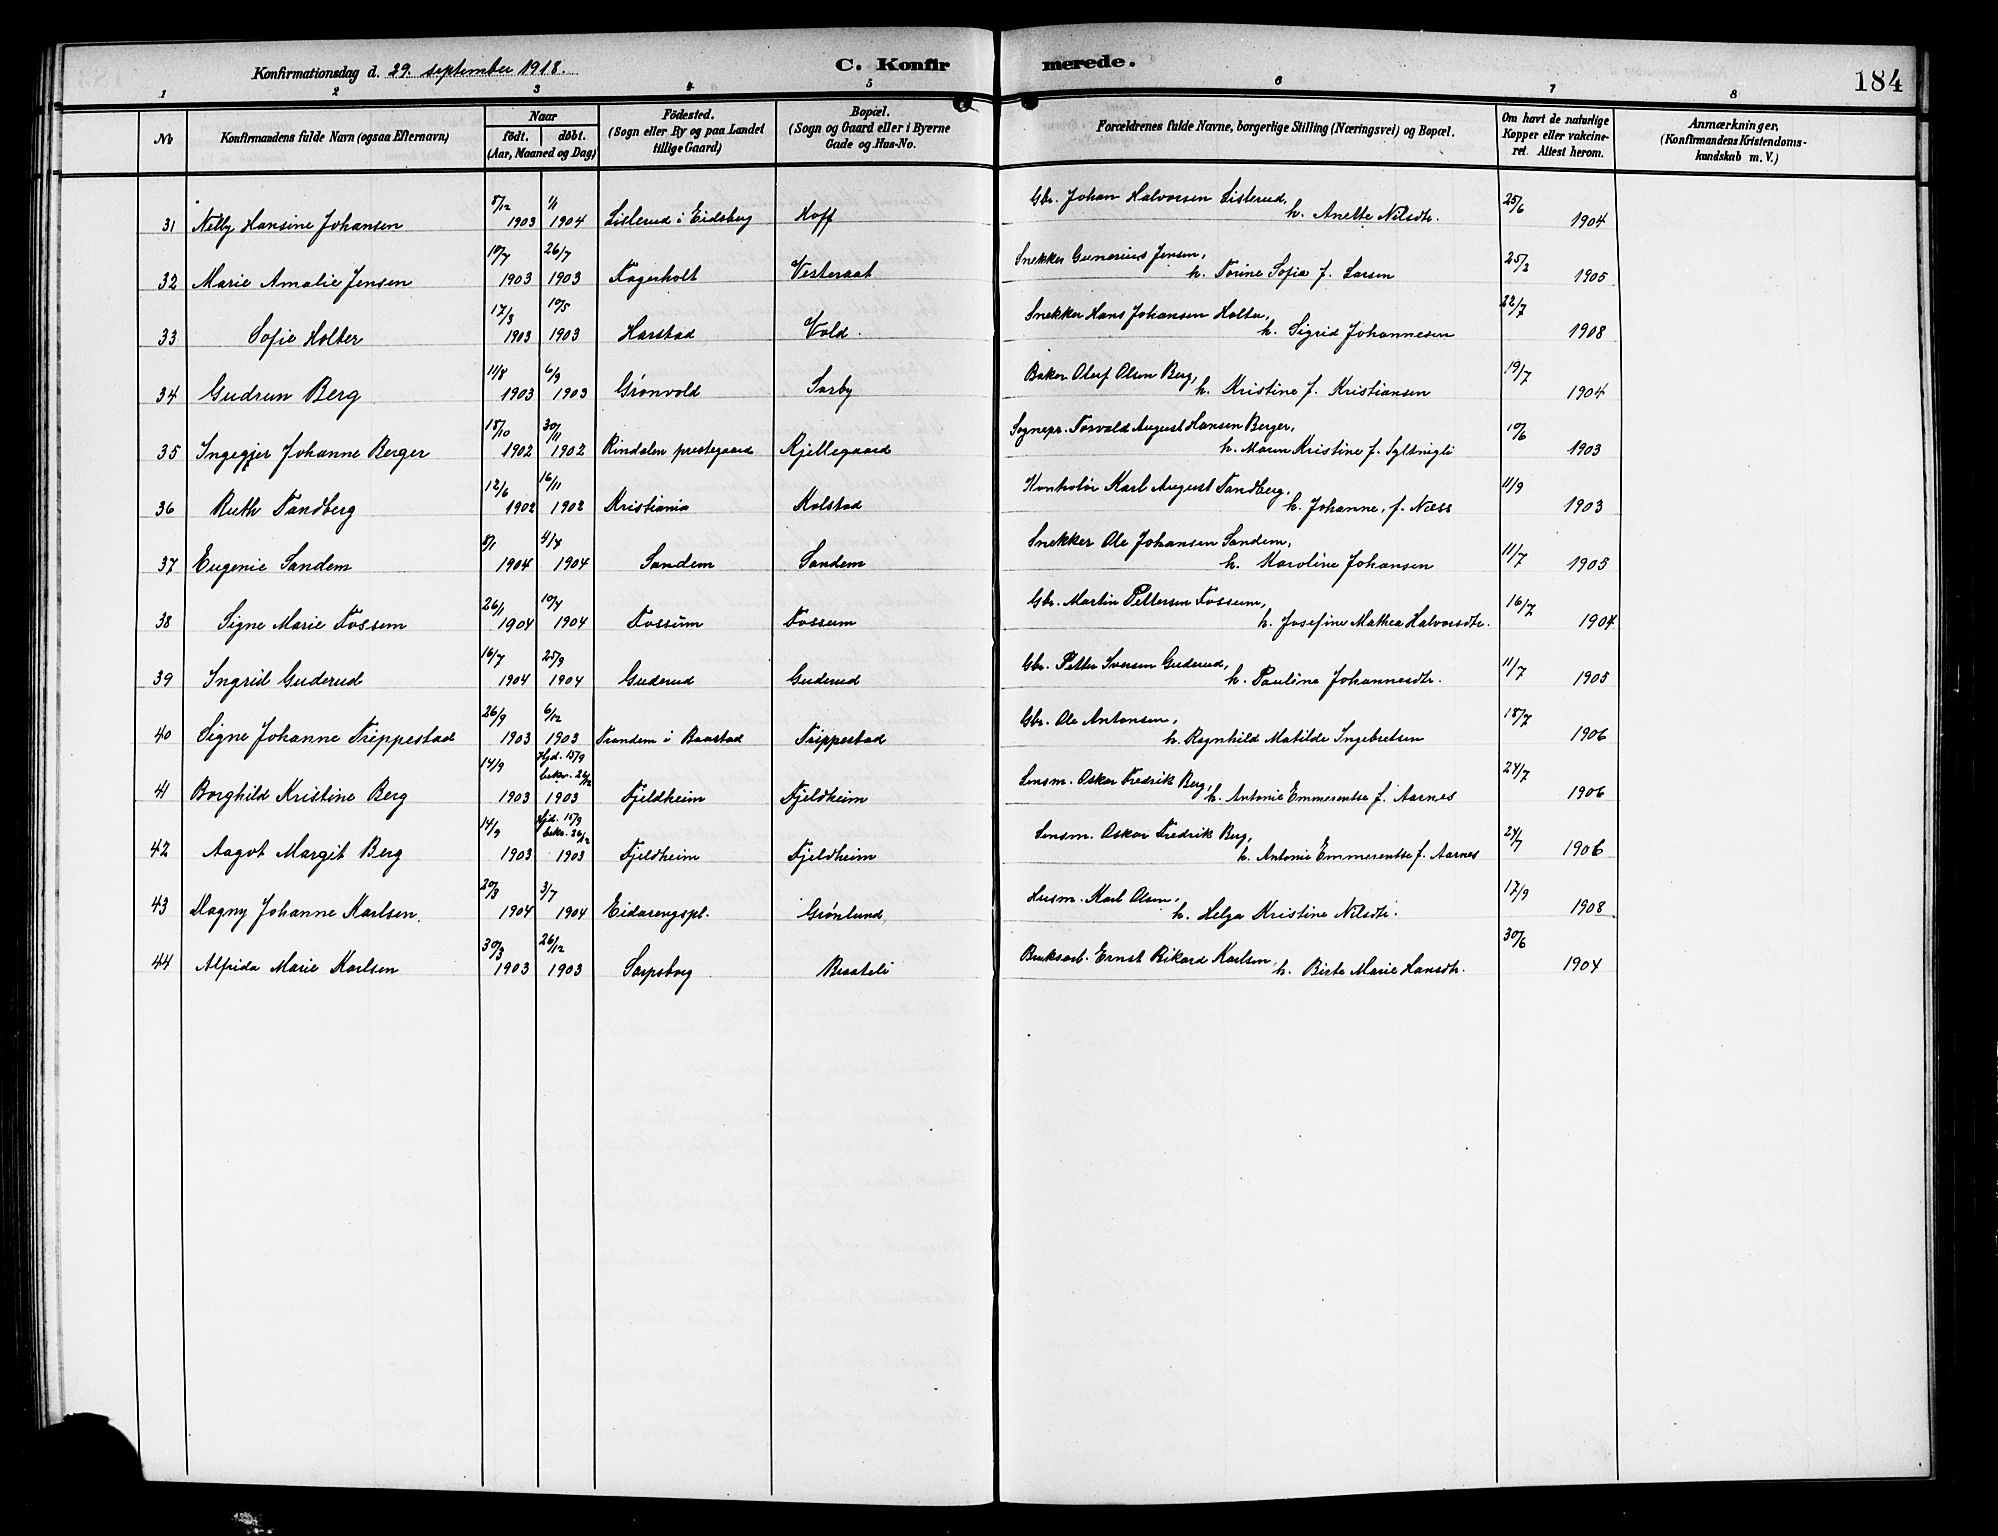 Konfirmationsdag d. 29. september 1918. C. Konfirmerede. 184
1 2 3 4 5 6 7 8
No Konfirmandens fulde Navn (ogsaa Efternavn) Naar født. døbt. (Aar, Maaned og Dag) Födested. (Sogn eller By og paa Landet tillige Gaard) Bopæl. (Sogn og Gaard eller i Byerne Gade og Hus-No. Forældrenes fulde Navne, borgerlige Stilling (Næringsvei) og Bopæl. Om havt de naturlige Kopper eller vakcineret. Attest herom. Anmærkninger, (Konfirmandens Kristendomskundskab m. V.)
31 Nelly Hansine Johansen 8/12 1903 1/1 1904 Listerud i Eidsberg Hoff Gbr. Johan Halvorsen Listerud, h. Anette Nilsdtr. 25/6 1904
32 Marie Amalie Jensen 10/7 1903 26/7 1903 Fagerholt Vesteraat Snekker Gunerius Jensen, h. Torine Sofie f. Larsen 25/2 1905
33 Sofie Holter 17/3 1903 10/5 1903 Harstad Vold. Snekker Hans Johansen Holter, h. Sigrid Johannesen 22/7 1908
34 Gudrun Berg 11/8 1903 6/9 1903 Grønvold Sarby Baker Oluf Olsen Berg, h. Kristine f. Kristiansen 19/7 1904
35 Ingegjer Johanne Berger 18/10 1902 30/11 1902 Rindalen prestegaard Kjellegaard Sognepr. Torvald August Hansen Berger, h. Maren Kristine f. 10/6 1903
36 Ruth Tandberg 12/6 1902 16/11 1902 Kristiania Kolstad Kontrolør Karl August Tandberg, h. Johanne, f. Næss 11/9 1903
37 Eugenie Sandem 8/1 1904 4/4 1904 Sandem Sandem Snekker Ole Johansen Sandem, h. Karoline Johansen 11/7 1905
38 Signe Marie Fossum 26/1 1904 10/4 1904 Fossum Fossum Gbr. Martin Pettersen Fossum, h. Josefine Mathea Halvorsdtr. 16/7 1904
39 Ingrid Guderud 16/7 1904 25/9 1904 Guderud Guderud Gbr. Petter Iversen Guderud, h. Pauline Johannesdtr. 11/7 1905
40 Signe Johanne Trippestad 26/9 1903 6/12 1903 Trandem i Baastad Trippestad Gbr. Ole Antonsen, h. Ragnhild Matilde Ingebretsen 18/7 1906
41 Borghild Kristine Berg 14/9 1903 Hjd. 15/9 bekr. 26/12 1903 Fjeldheim Fjeldheim Lensm. Oskar Fredrik Berg, h. Antonie Emmerentse f. Aarnes 24/7 1906
42 Aagot Margit Berg 14/9 1903 Hjd. 15/9 bekr. 26/12 1903 Fjeldheim Fjeldheim Lensm. Oskar Fredrik Berg, h. Antonie Emmerentse f. Aarnes 24/7 1906
43 Magny Johanne Karlsen. 20/3 1904 3/7 1904 Eidarengspl. Grønlund Husm. Karl Olsen, h. Helga Kristine Nilsdtr. 17/9 1908
44 Alfrida Marie Karlsen 30/3 1903 26/12 1903 Sarpsborg Braateli Bruksarb. Ernst Rikard Karlsen, h. Birte Marie Hansdtr. 30/6 1904